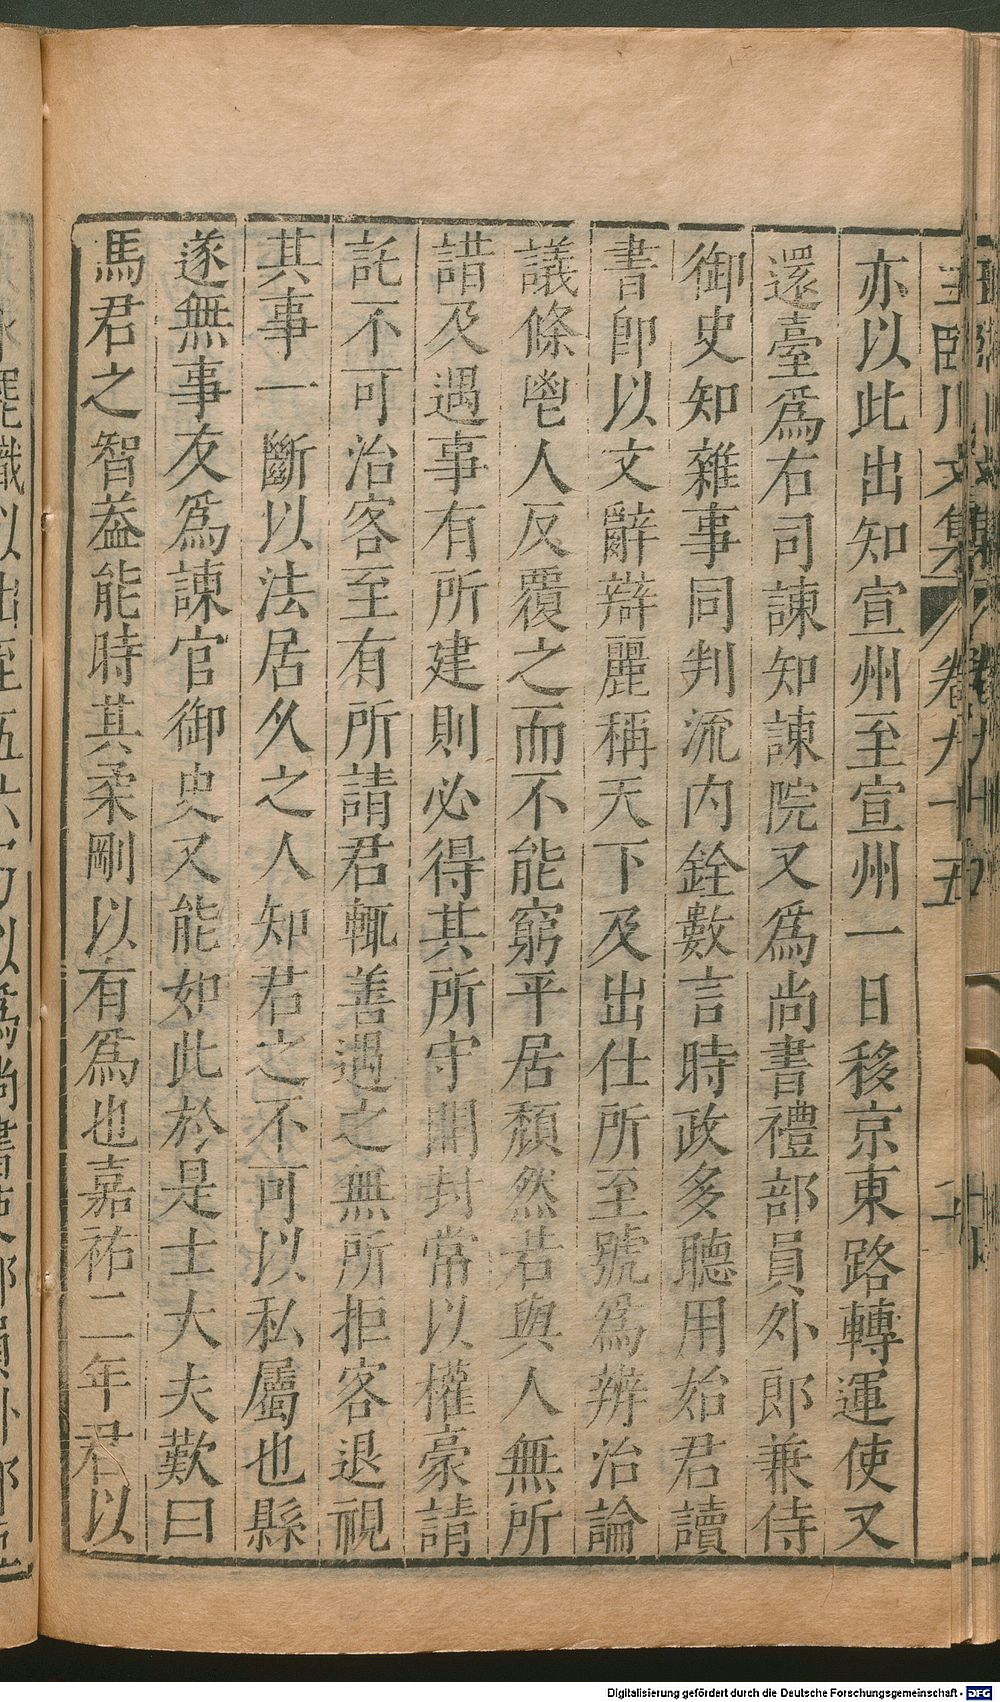 亦以此出知宣州至宣州一日移京東路轉運使又
還臺爲右司諫知諫院又爲尚書禮部員外郎兼侍
御史知雜事同判流内銓數言時政多聽用始君讀
書卽以文辭辯麗稱天下及出仕所至號爲辨治論
議條鬯人反覆之而不能窮平居頹然若與人無所
諎及遇事有所建則必得其所守開封常以權豪請
託不可治客至有所請君輒善遇之無所拒客退視
其事一斷以法居久之人知君之不可以私屬也縣
遂無事友爲諫官御史又能如此於是士大夫歎曰
馬君之智葢能時其柔剛以有爲也嘉祐二年君以
王臨川文集 卷九十五
Digitalisierung gefördert durch die Deutsche Forschungsgemeinschaft - DFG